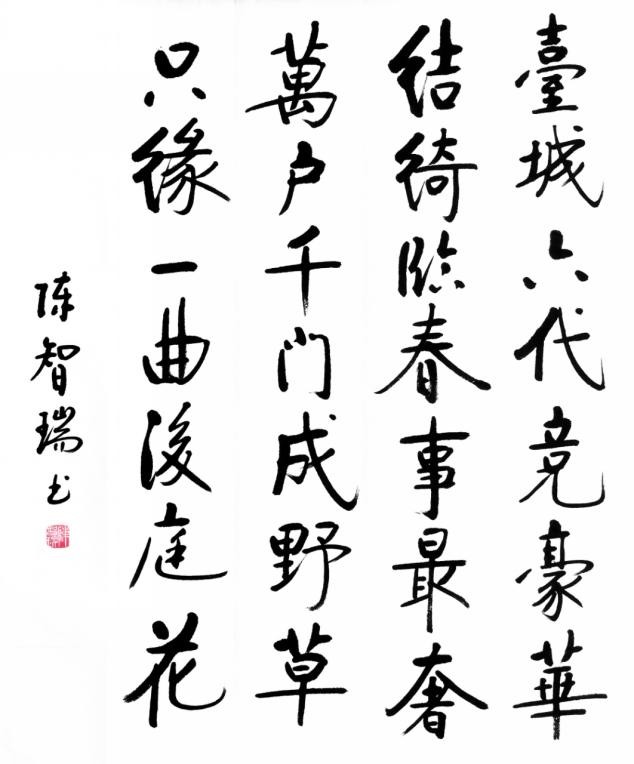 臺城六代竞豪華
结绮临春事最奢
萬户千门成野草
只缘一曲後庭花
陈智瑞书